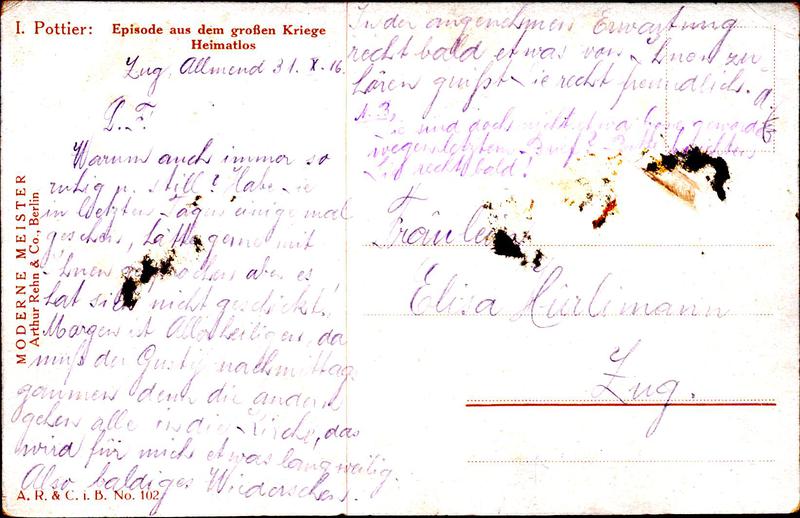 I. Pottier: Episode aus dem großen Kriege
Heimatlos
Zug, Allmend 31. X. 16.
L. F.
Warum auch immer so
ruhig u. still? Habe Sie
in letzten Tagen einige mal
gesehen, hätte gerne mit
Ihnen gesprochen aber es
hat sich nicht geschickt!
Morgen ist Allerheiligen, da
muß der Gustij nachmittag
gaumen denn die andern
gehen alle in die Kirche, das
wird für mich etwas langweilig.
Also baldiges Wiedersehen.
A. R. & C. i. B. No. 102
MODERNE MEISTER
Arthur Rehn & Co., Berlin
In der angenehmen Erwartung
recht bald etwas von Ihnen zu
hören grüßt Sie recht freundlich.
N.B.
Sie sind doch nicht etwa geworden
wegen letzten Brief? Bitte
recht bald!
Fräulein
Elisa Hürlimann
Zug.